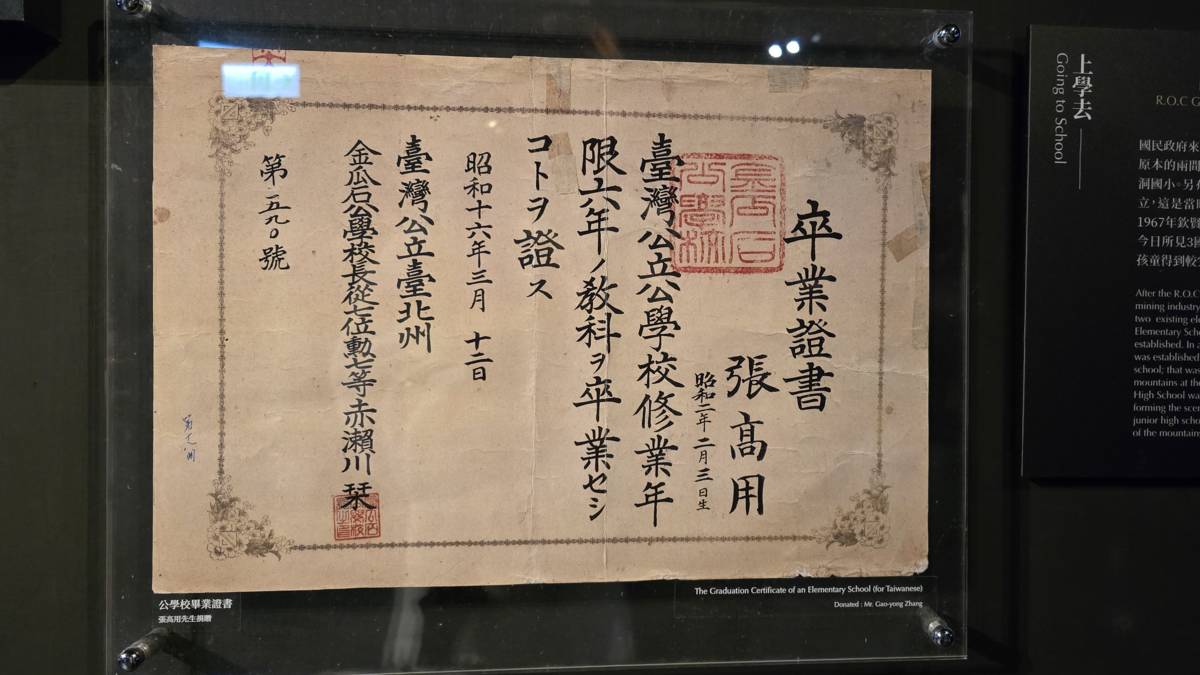 卒業證書
張高用
昭和二年二月三日生
臺灣公立公學校修業年
限六年ノ教科ヲ卒業セシ
コトヲ證ス
昭和十六年三月 十二日
臺灣公立臺北州
金瓜石公學校長從七位勳七等赤瀨川 栞
第二五九〇號
公學校畢業證書
張高用先生捐贈
The Graduation Certificate of an Elementary School (for Taiwanese)
Donated : Mr. Gao-yong Zhang
上學去
Going to School
R.O.C G
國民政府來
原本的兩間
洞國小。另
立,這是當
1967年欽
今日所見3
孩童得到較
After the R.O.C
mining industry
two existing ele
Elementary Scho
established. In a
was established
school; that was
mountains at the
High School wa
forming the scen
junior high scho
of the mountain